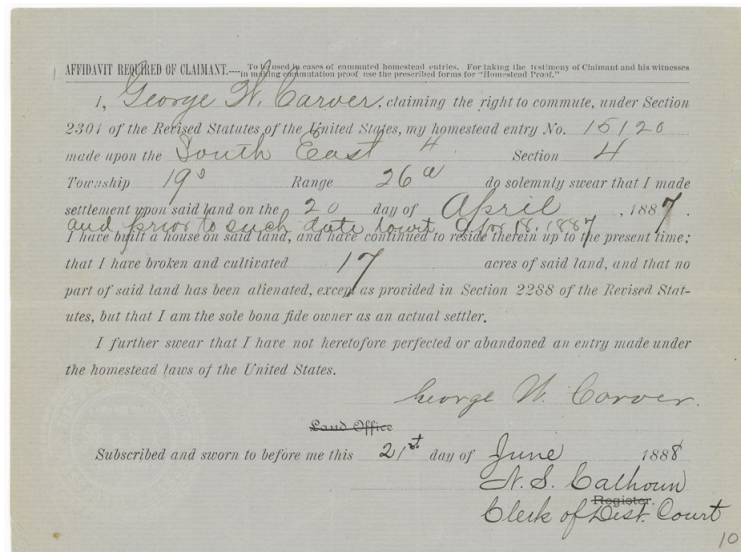 AFFIDAVIT REQUIRED OF CLAIMANT.---- To be used in cases of commuted homestead entries. For taking the testimony of Claimant and his witnesses
in making commutation proof use the prescribed forms for "Homestead Proof."
I, George W. Carver, claiming the right to commute, under Section
2301 of the Revised Statutes of the United States, my homestead entry No. 15120
made upon the South East 4 Section 4
Township 19 s Range 26 w do solemnly swear that I made
settlement upon said land on the 20 day of April, 1887.
and prior to such date to wit Apr 18. 1887
I have built a house on said land, and have continued to reside therein up to the present time;
that I have broken and cultivated 17 acres of said land, and that no
part of said land has been alienated, except as provided in Section 2288 of the Revised Stat-
utes, but that I am the sole bona fide owner as an actual settler.
I further swear that I have not heretofore perfected or abandoned an entry made under
the homestead laws of the United States.
George W. Carver.
Land Office
Subscribed and sworn to before me this 21st day of June 1888
N. S. Calhoun
Register.
Clerk of Dist. Court
10